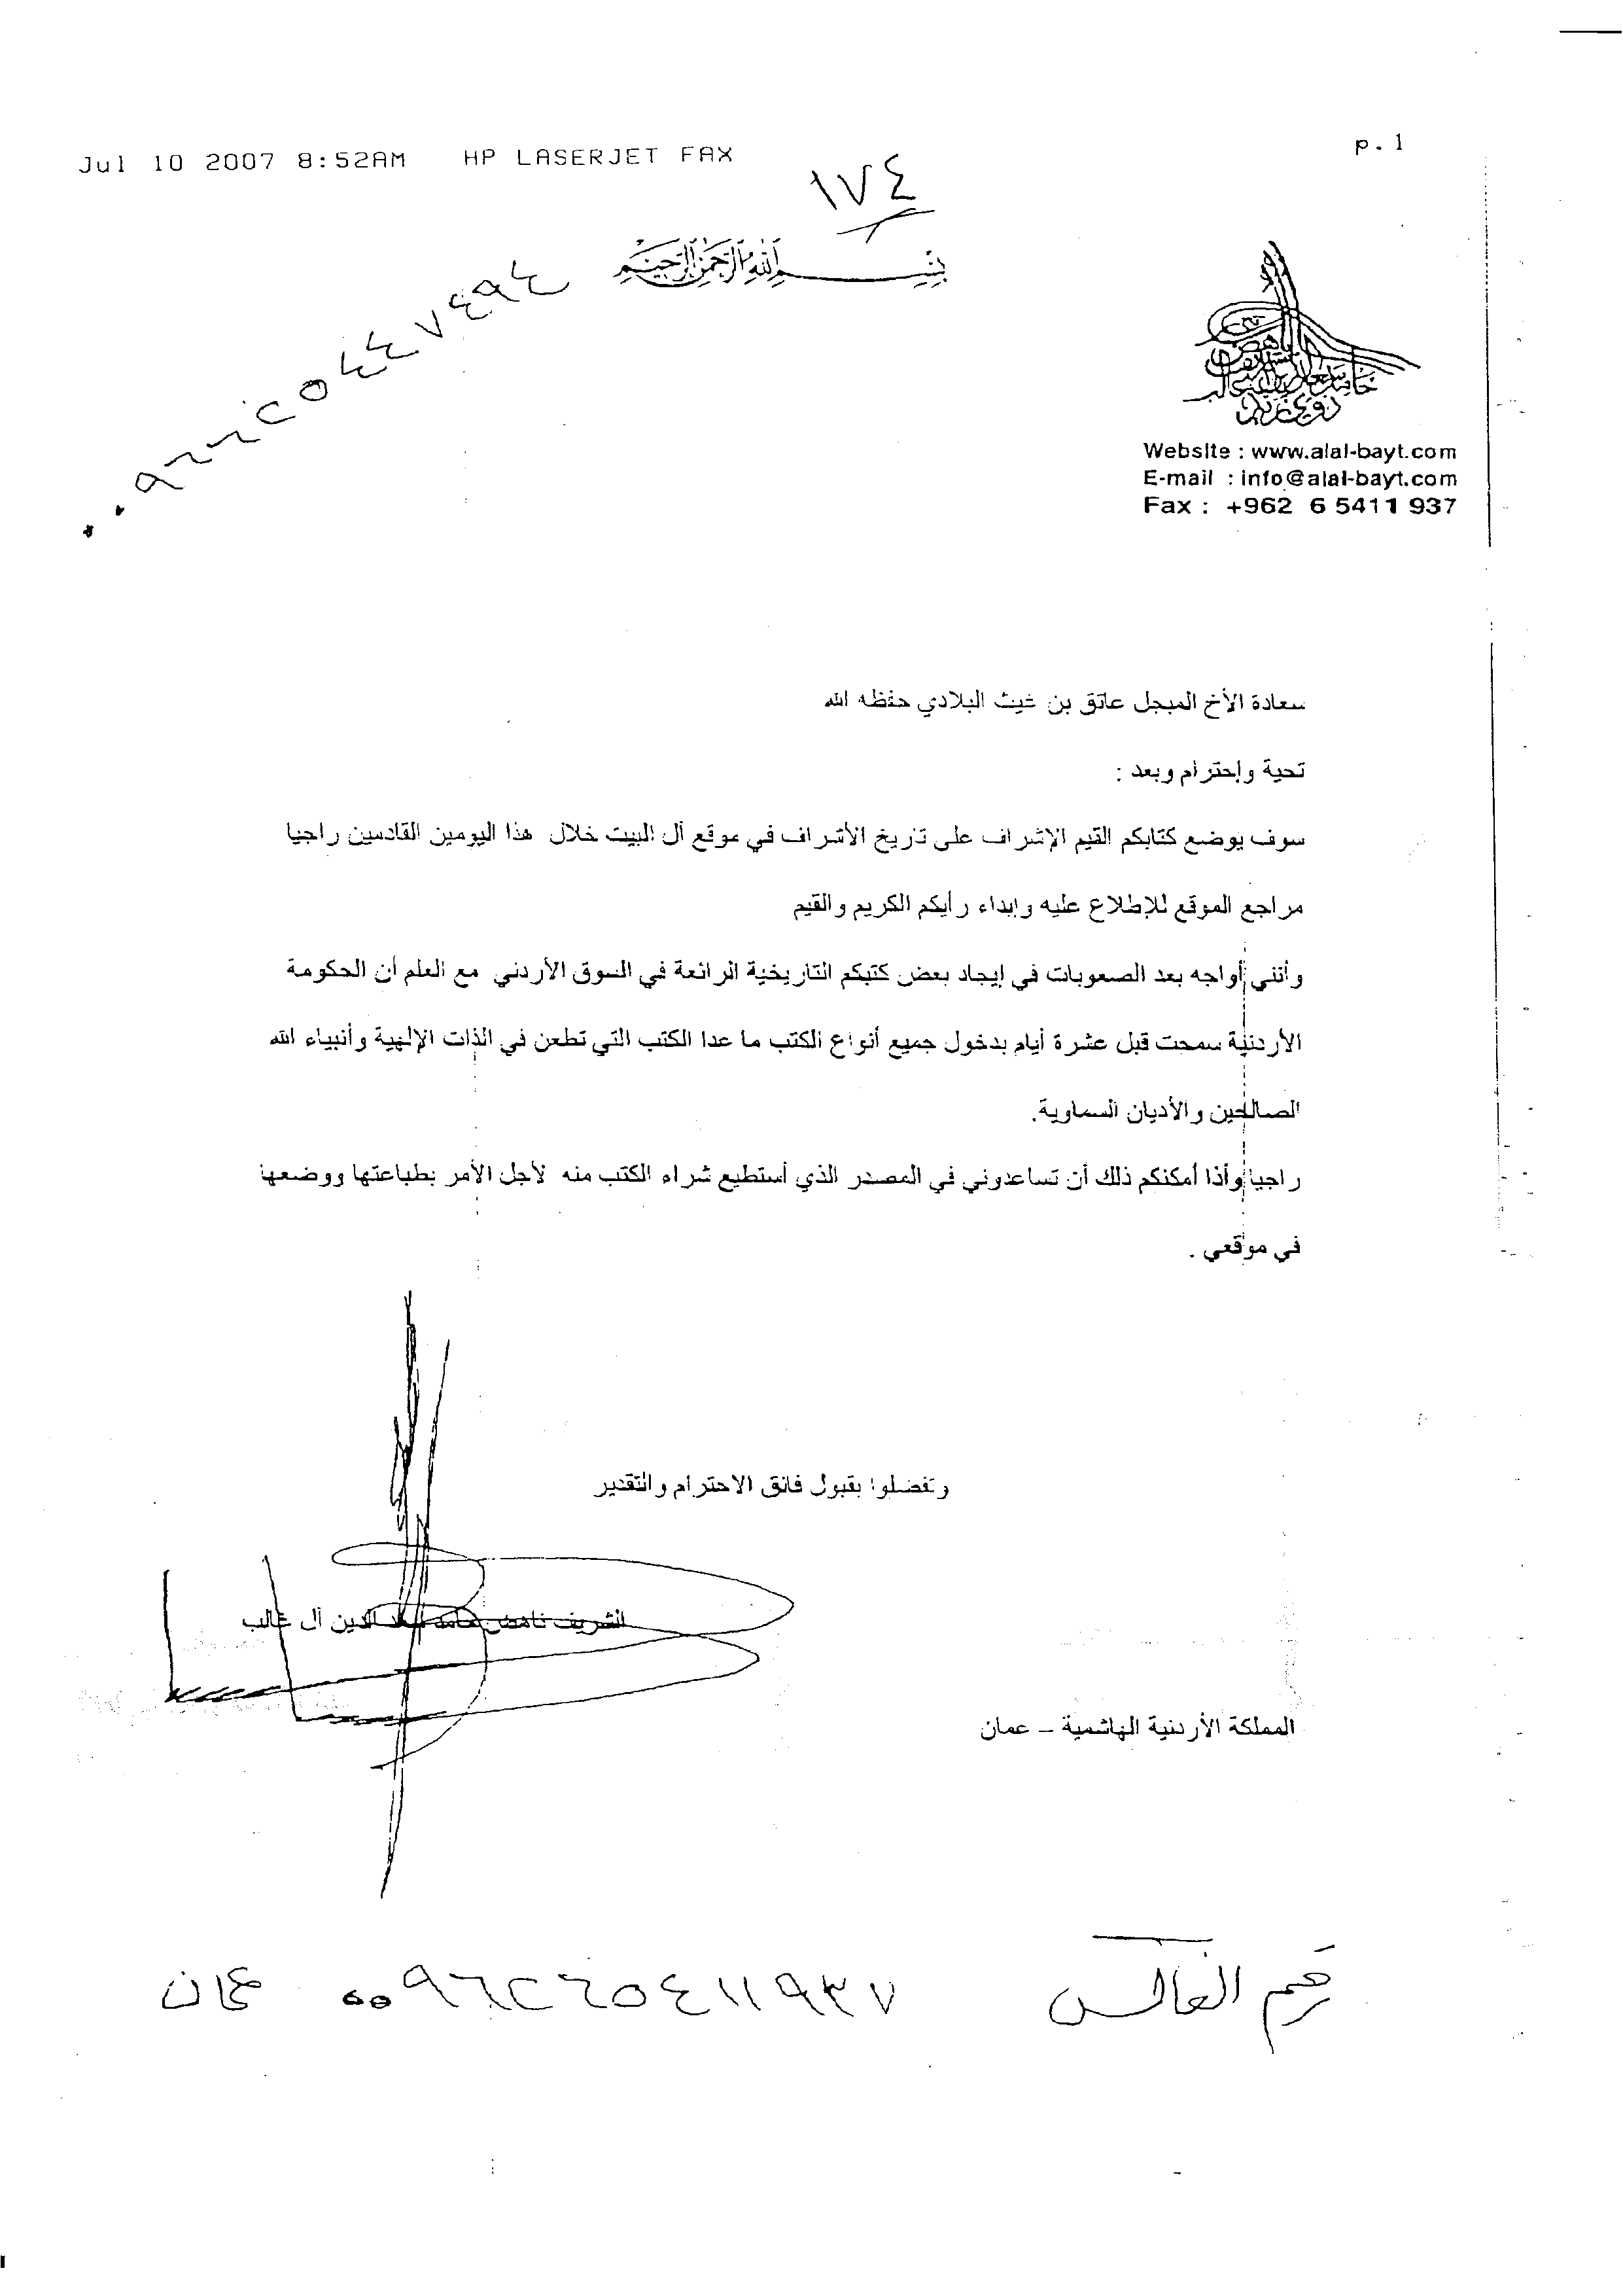 Jul 10 2007 8:52AM HP LASERJET FAX p.1
١٧٤
بسم الله الرحمن الرحيم
Website : www.alal-bayt.com
E-mail : info@alal-bayt.com
Fax : +962 6 5411 937
سعادة الأخ المبجل عاتق بن غيث البلادي حفظه الله
تحية وإحترام وبعد :
سوف يوضع كتابكم القيم الإشراف على تاريخ الأشراف في موقع آل البيت خلال هذا اليومين القادمين راجيا
مراجع الموقع للإطلاع عليه وإبداء رأيكم الكريم والقيم
وأنني أواجه بعد الصعوبات في إيجاد بعض كتبكم التاريخية الرائعة في السوق الأردني مع العلم أن الحكومة
الأردنية سمحت قبل عشرة أيام بدخول جميع أنواع الكتب ما عدا الكتب التي تطعن في الذات الإلهية وأنبياء الله
الصالحين والأديان السماوية.
راجيا وأذا أمكنكم ذلك أن تساعدوني في المصدر الذي أستطيع شراء الكتب منه لأجل الأمر بطباعتها ووضعها
في موقعي .
وتفضلوا بقبول فائق الاحترام والتقدير
الشريف ناهض حامد سعد الدين آل غالب
المملكة الأردنية الهاشمية – عمان
رقم الفاكس ٠٠٩٦٢٦٥٤١١٩٣٧ عمان